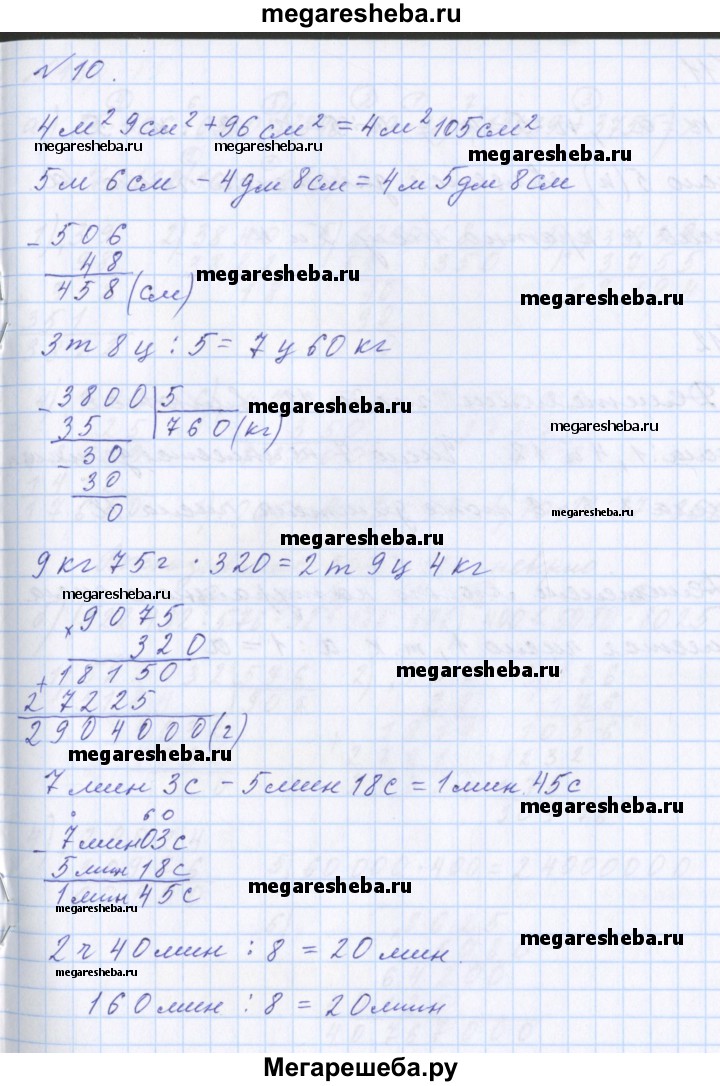 megaresheba.ru
№ 10.
4м² 9см² + 96см² = 4м² 105см²
megaresheba.ru megaresheba.ru megaresheba.ru
5м 6см – 4дм 8см = 4м 5дм 8см
- 506
48
458 (см)
megaresheba.ru
megaresheba.ru
3т 8ц : 5 = 7ц 60кг
- 3800 5
35 760 (кг)
megaresheba.ru
megaresheba.ru
- 30
30
0
megaresheba.ru
9кг 75г · 320 = 2т 9ц 4кг
megaresheba.ru
× 9075
320
+ 18150
27225
2904000 (г)
megaresheba.ru
megaresheba.ru
7мин 3с – 5мин 18с = 1мин 45с
megaresheba.ru
60
- 7мин 03с
5мин 18с
1мин 45с
megaresheba.ru
megaresheba.ru
2ч 40мин : 8 = 20мин.
megaresheba.ru
megaresheba.ru
160мин : 8 = 20мин
Мегарешеба.ру